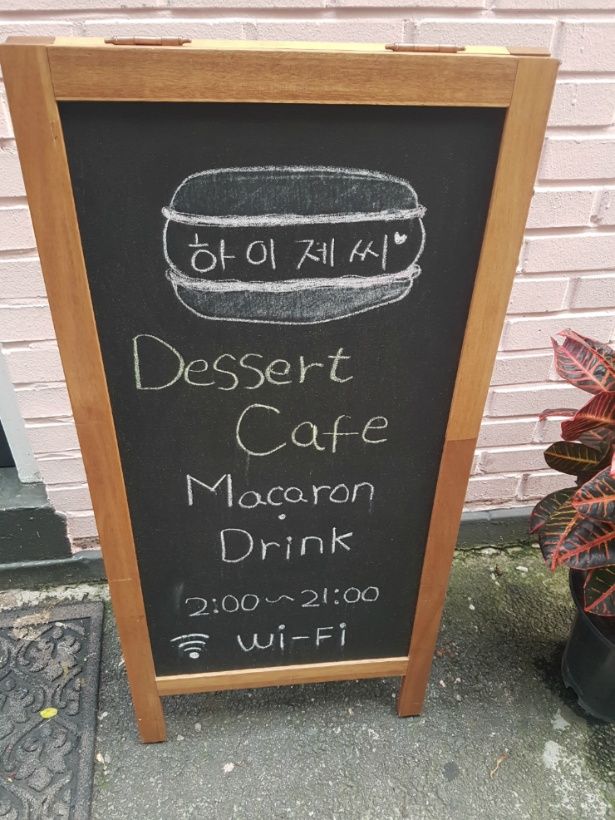 하이제씨
Dessert
Cafe
Macaron
·
Drink
2:00~21:00
Wi-Fi